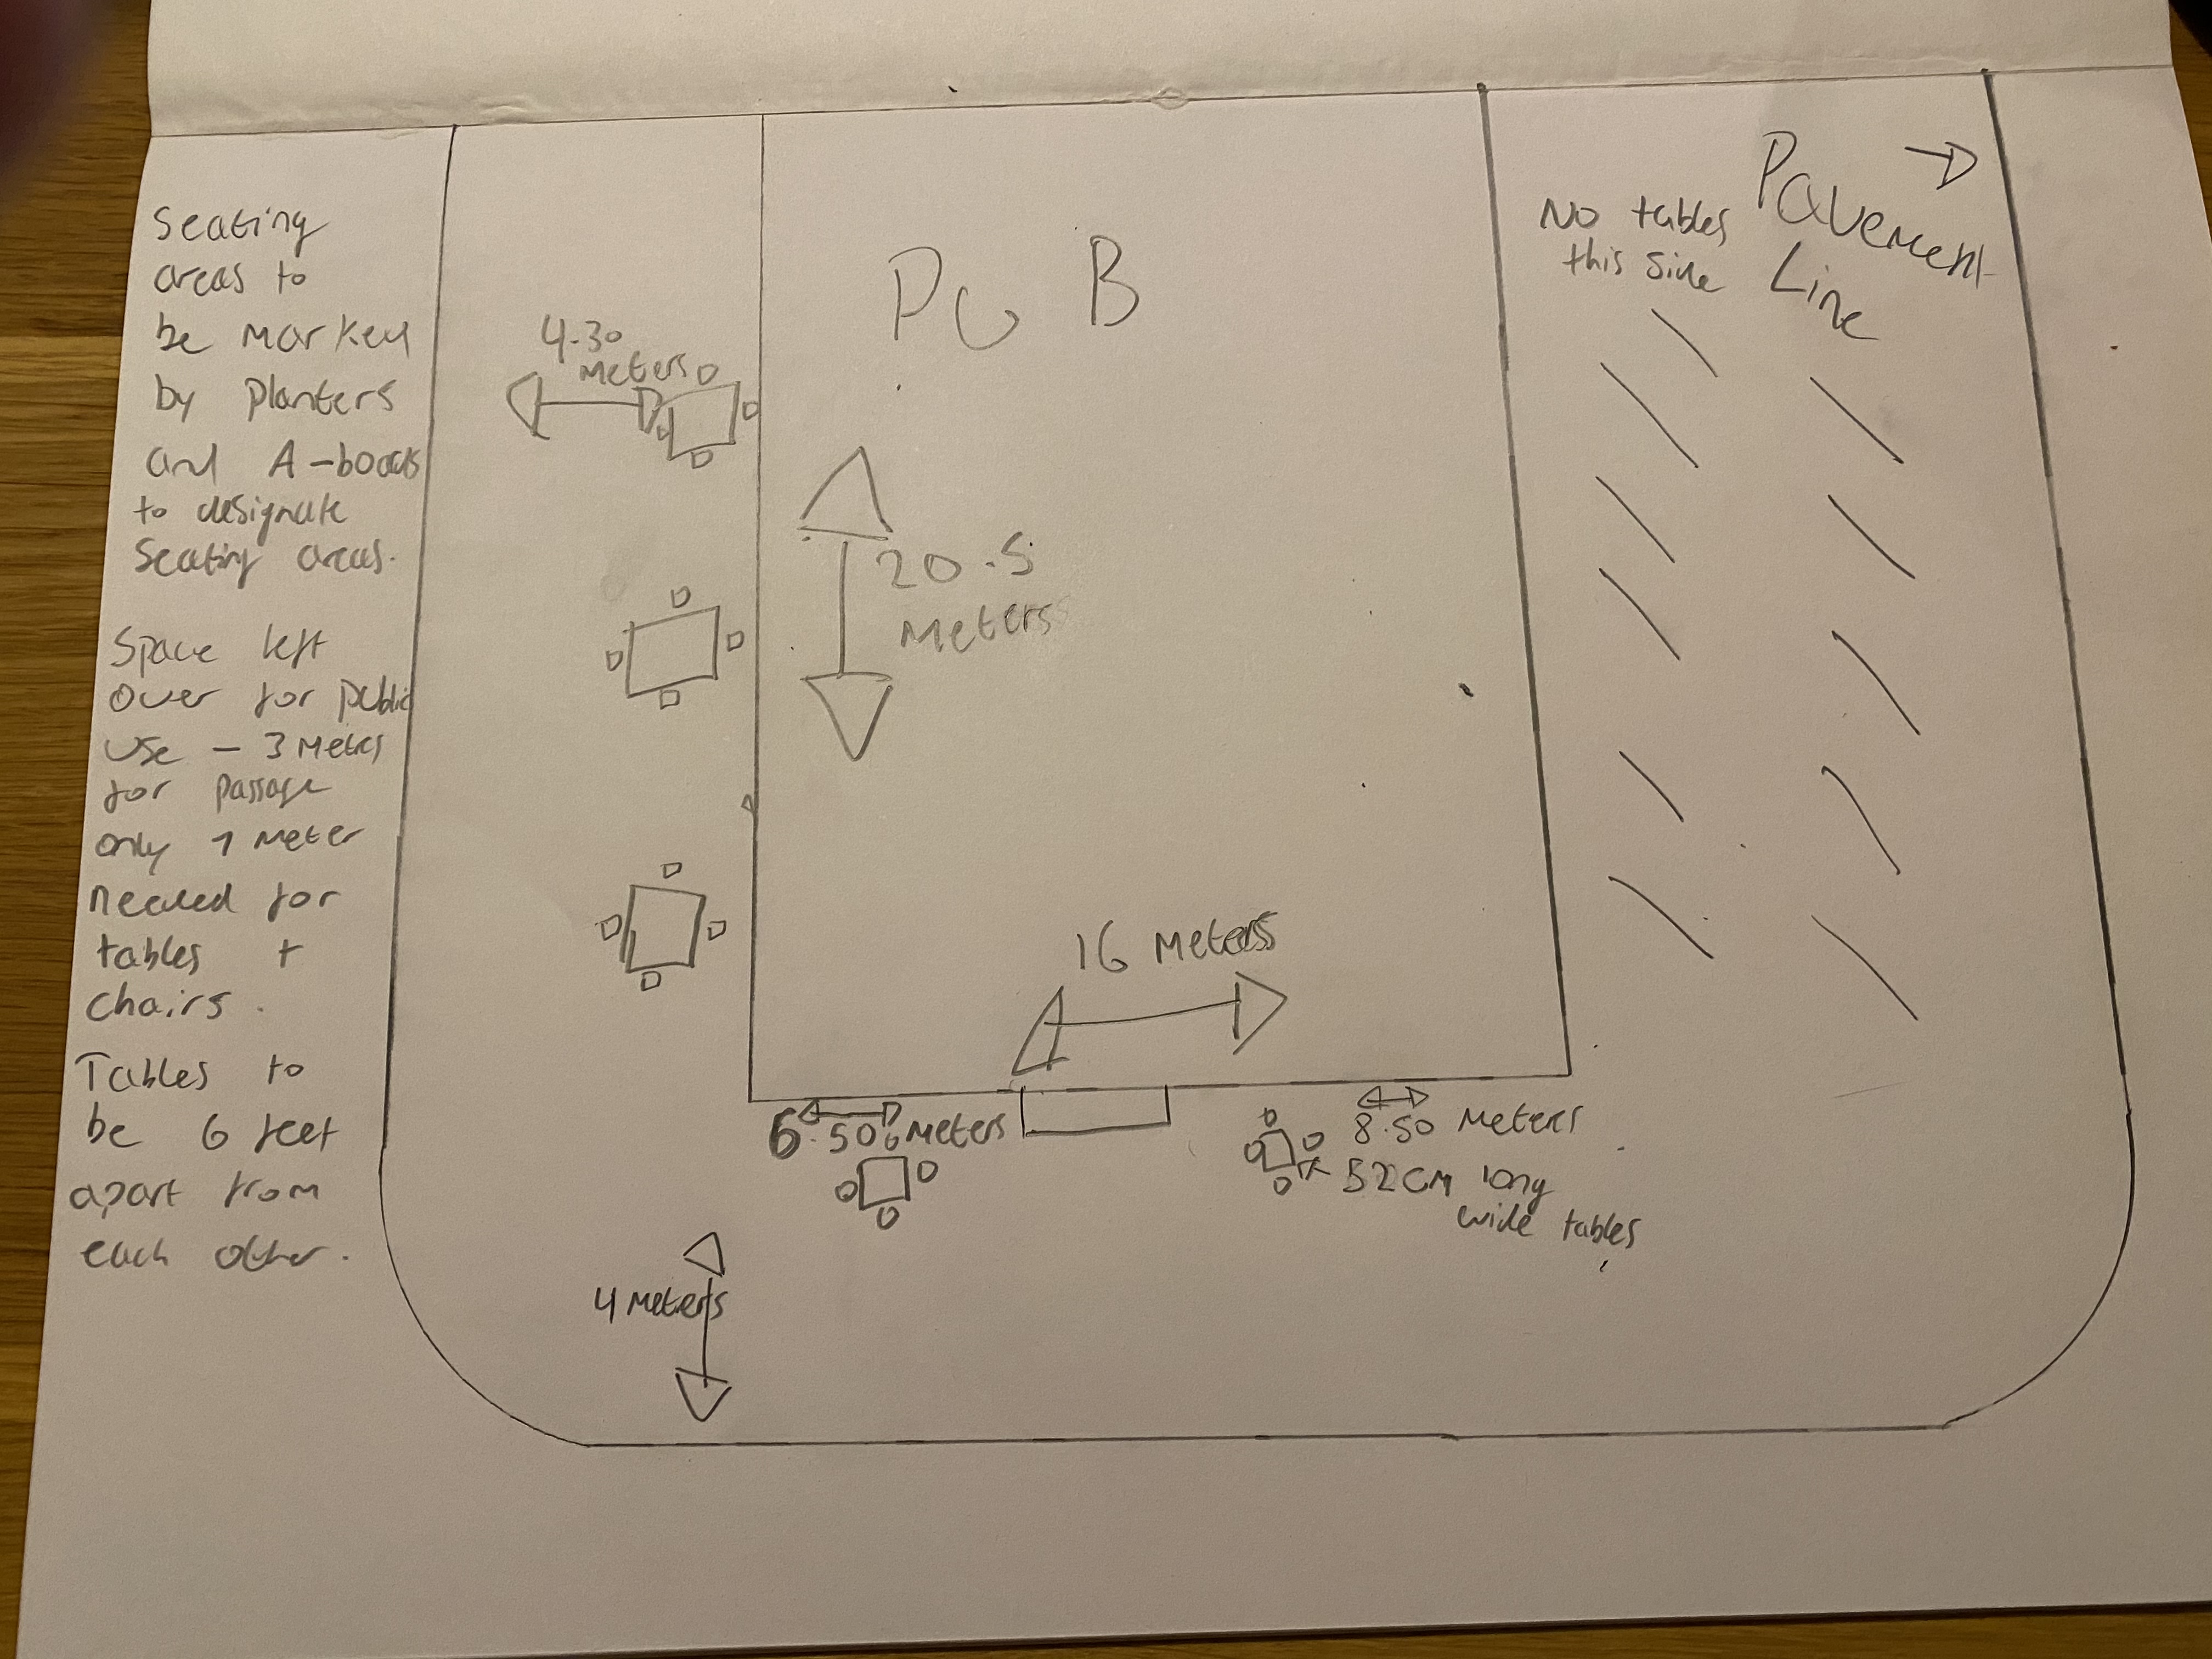 Seating
areas to
be marked
by planters
and A-boads
to designate
Seating areas.
Space left
over for public
use - 3 Metres
for passage
only 1 meter
needed for
tables +
chairs.
Tables to
be 6 feet
apart from
each other.
4.30
Meters
PUB
20.5
Meters
16 Meters
6.50 Meters
8.50 Meters
52CM long
wide tables
4 Meters
No tables
this side
Pavement
Line